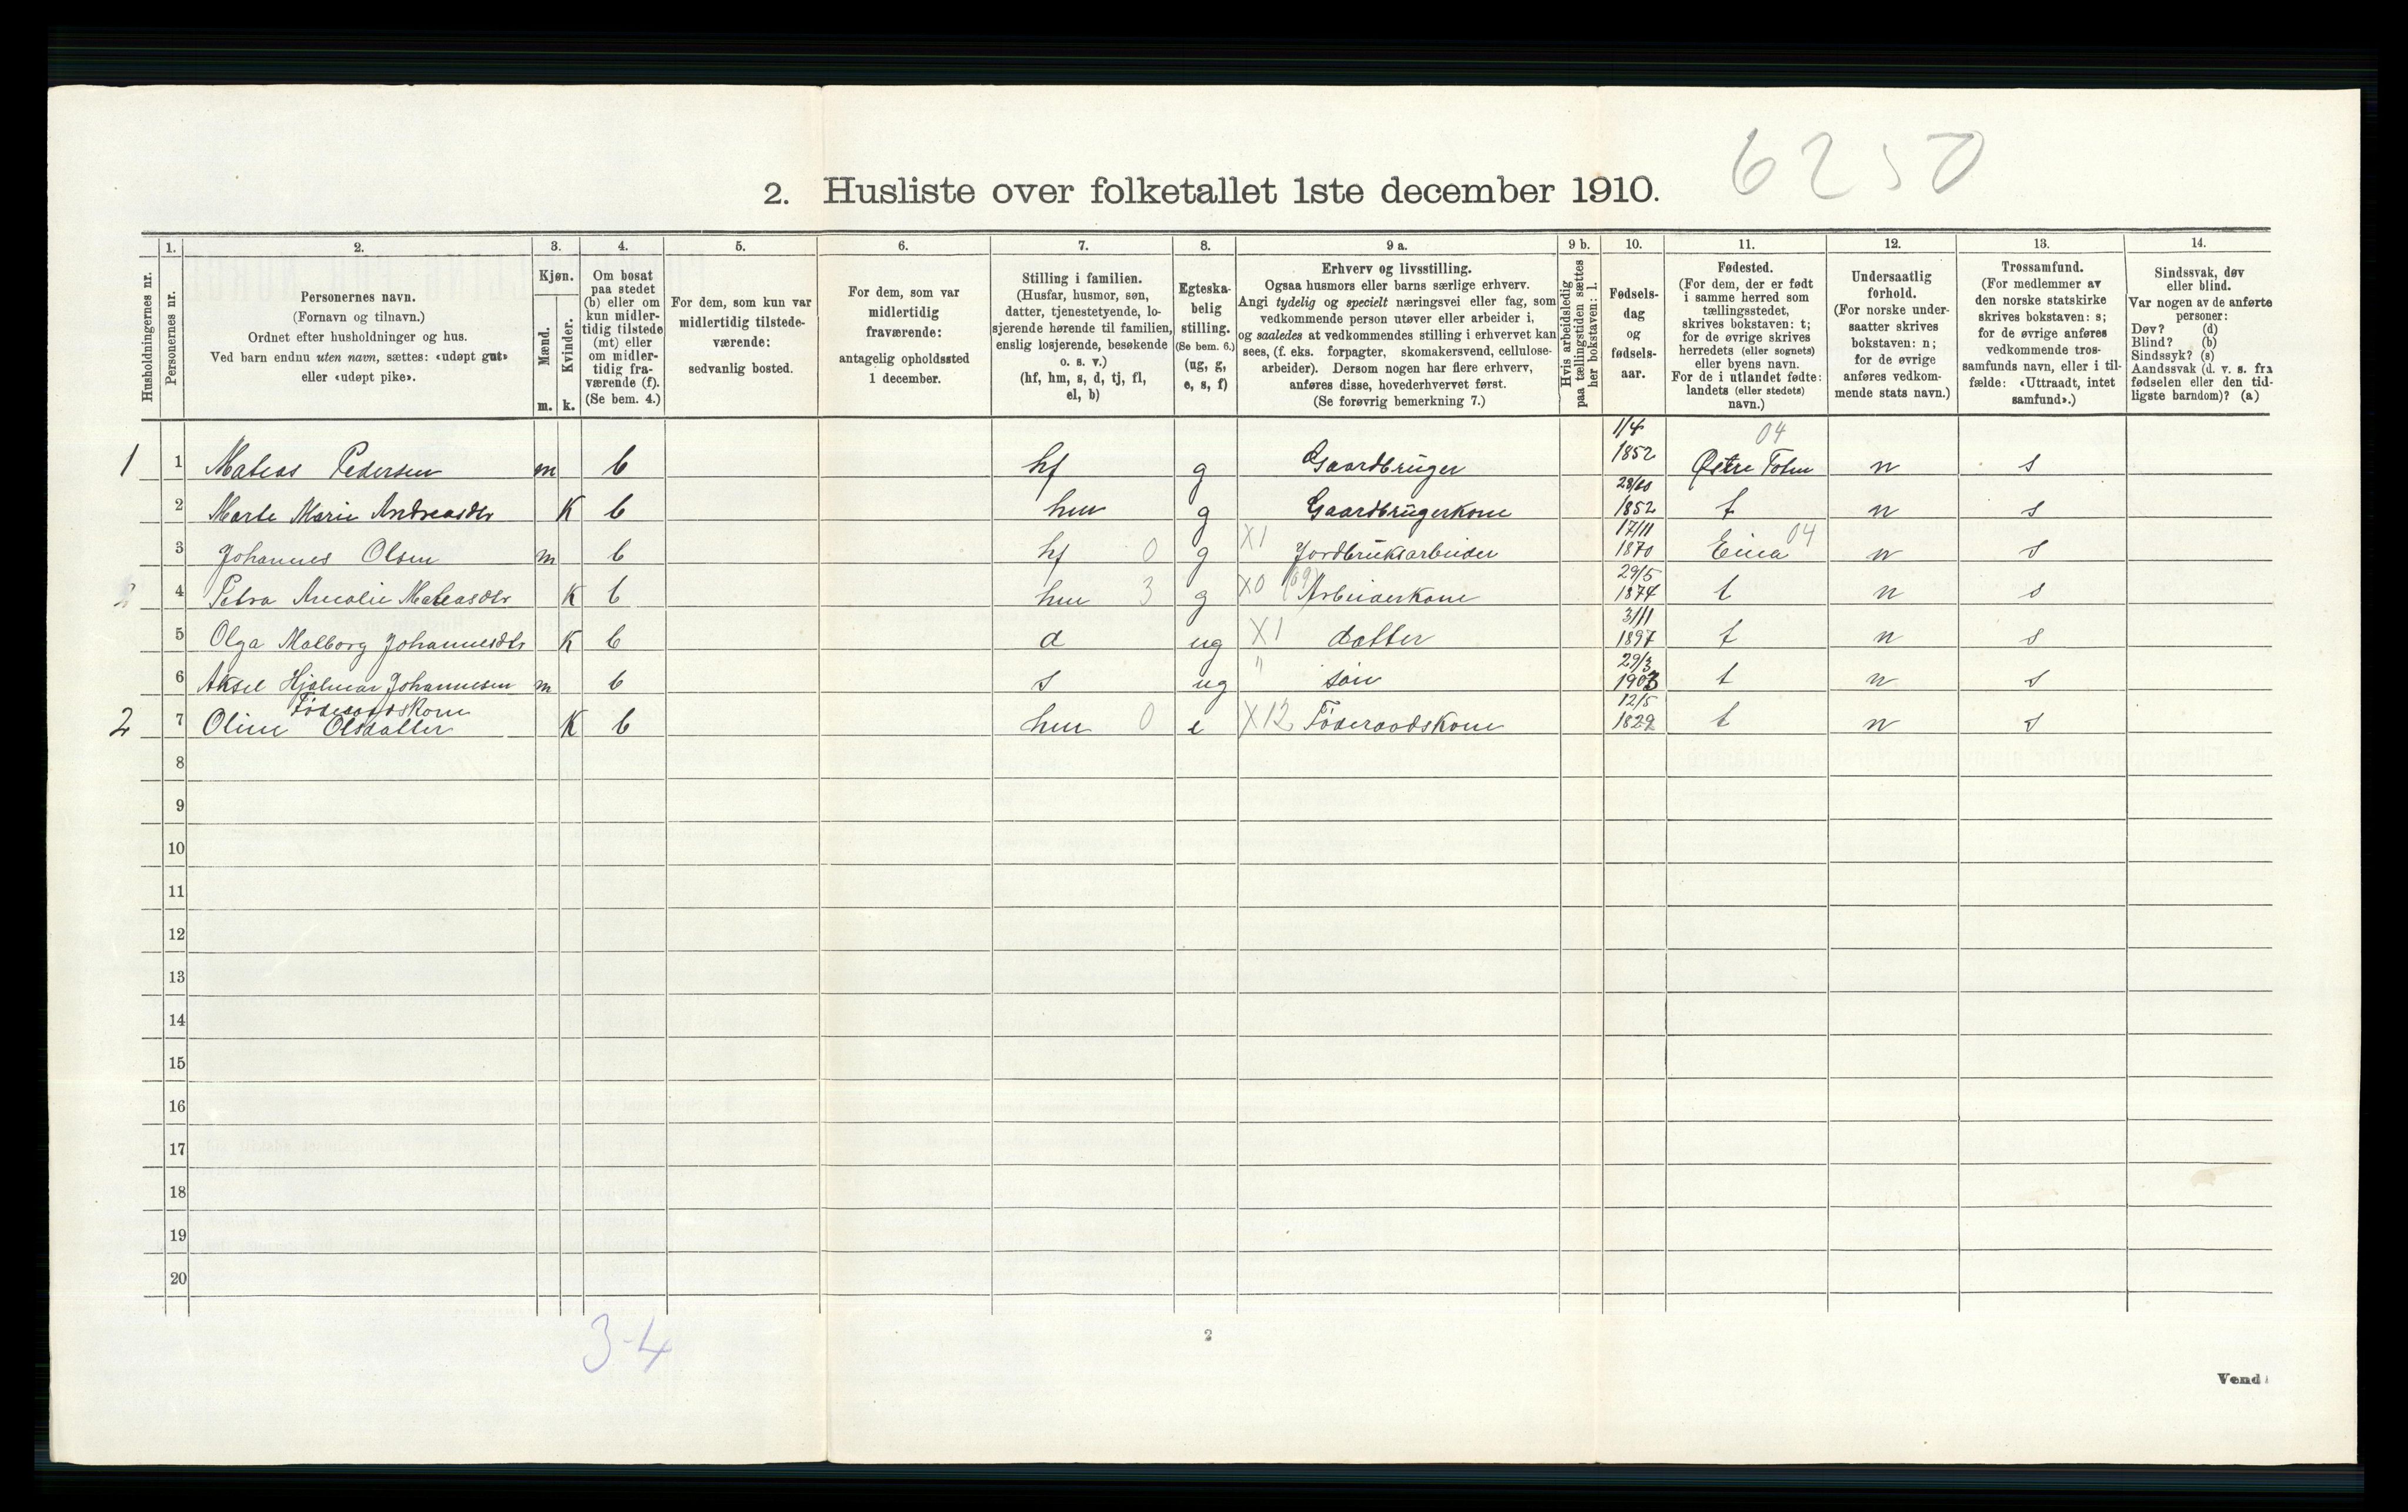 6250
2. Husliste over folketallet 1ste december 1910.
Husholdningernes nr.
1.
Personernes nr.
2.
Personernes navn.
(Fornavn og tilnavn.)
Ordnet efter husholdninger og hus.
Ved barn endnu uten navn, sættes: «udøpt gut»
eller «udøpt pike».
3.
Kjøn.
Mænd.
Kvinder.
m. k.
4.
Om bosat
paa stedet
(b) eller om
kun midler-
tidig tilstede
(mt) eller
om midler-
tidig fra-
værende (f).
(Se bem. 4.)
5.
For dem, som kun var
midlertidig tilstede-
værende:
sedvanlig bosted.
6.
For dem, som var
midlertidig
fraværende:
antagelig opholdssted
1 december.
7.
Stilling i familien.
(Husfar, husmor, søn,
datter, tjenestetyende, lo-
sjerende hørende til familien,
enslig losjerende, besøkende
o. s. v.)
(hf, hm, s, d, tj, fl,
el, b)
8.
Egteska-
belig
stilling.
(Se bem. 6.)
(ug, g,
e, s, f)
9 a.
Erhverv og livsstilling.
Ogsaa husmors eller barns særlige erhverv.
Angi tydelig og specielt næringsvei eller fag, som
vedkommende person utøver eller arbeider i,
og saaledes at vedkommendes stilling i erhvervet kan
sees, (f. eks. forpagter, skomakersvend, cellulose-
arbeider). Dersom nogen har flere erhverv,
anføres disse, hovederhvervet først.
(Se forøvrig bemerkning 7.)
9 b.
Hvis arbeidsledig
paa tællingstiden sættes
her bokstaven: l.
10.
Fødsels-
dag
og
fødsels-
aar.
11.
Fødested.
(For dem, der er født
i samme herred som
tællingsstedet,
skrives bokstaven: t;
for de øvrige skrives
herredets (eller sognets)
eller byens navn.
For de i utlandet fødte:
landets (eller stedets)
navn.)
12.
Undersaatlig
forhold.
(For norske under-
saatter skrives
bokstaven: n;
for de øvrige
anføres vedkom-
mende stats navn.)
13.
Trossamfund.
(For medlemmer av
den norske statskirke
skrives bokstaven: s;
for de øvrige anføres
vedkommende tros-
samfunds navn, eller i til-
fælde: «Uttraadt, intet
samfund».)
14.
Sindssvak, døv
eller blind.
Var nogen av de anførte
personer:
Døv? (d)
Blind? (b)
Sindssyk? (s)
Aandssvak (d. v. s. fra
fødselen eller den tid-
ligste barndom)? (a)
1 1 Mateas Pedersen m b hf g Gaardbruger 1/4 1852 Østre Toten 04 n s
2 Marte Marie Andreasdtr K b hm g Gaardbrugerkone 1852 t n s
3 Johannes Olsen m b hf 0 g X1 Jordbruksarbeider 17/11 1870 Eina 04 n s
4 Petra Amalie Mateasdtr K b hm 3 g X0 Arbeiderkone 29/5 1874 t n s
5 Olga Malborg Johannesdtr K b d ug X1 datter 31/1 1897 t n s
6 Aksel Hjalmar Johannesen m b s ug " søn 29/3 1903 t n s
Føderaadskone
2 7 Oline Olsdatter K b hm 0 e X12 Føderaadskone 12/5 1829 t n s
8
9
10
11
12
13
14
15
16
17
18
19
20
3-4
2
Vend